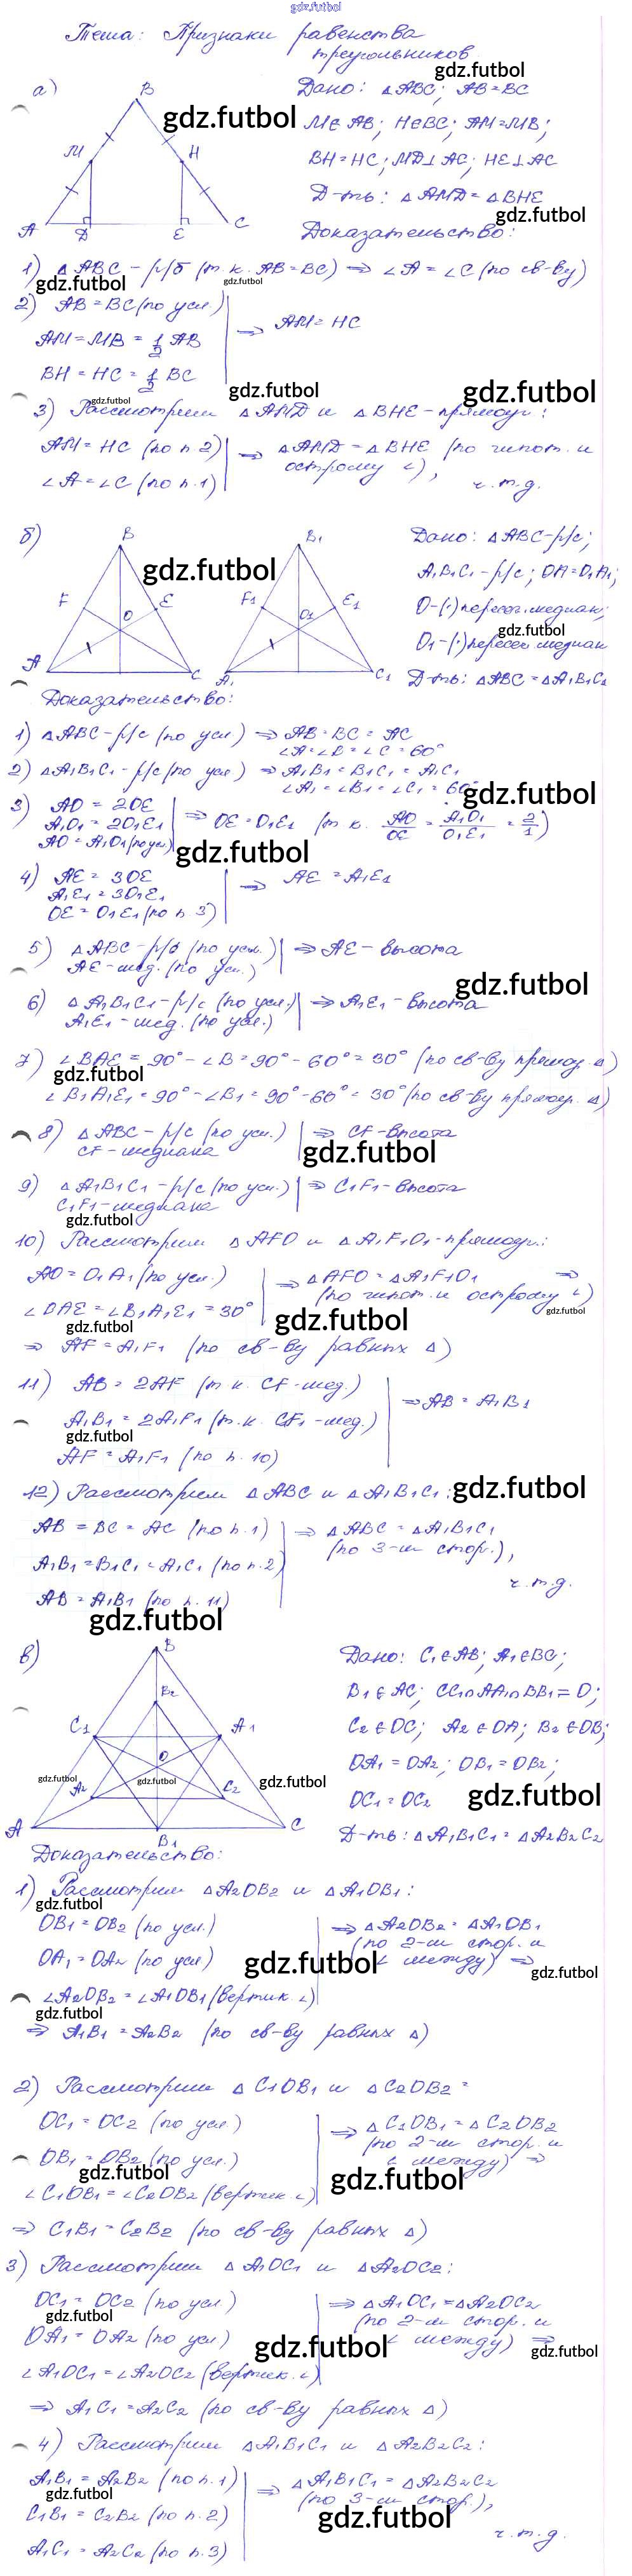 gdz.futbol
Тема: Признаки равенства
треугольников
gdz.futbol
а)
B
Дано: △ABC; AB=BC
gdz.futbol
M∈AB; H∈BC; AM=MB;
M
H
BH=HC; MD⊥AC; HE⊥AC
Д-ть: △AMD=△BHE
gdz.futbol
A
D
E
C
Доказательство:
1) △ABC – р/б (т.к. AB=BC) ⇒ ∠A=∠C (по св-ву)
gdz.futbol
gdz.futbol
2) AB=BC (по усл.)
⇒ AM=HC
AM=MB=1/2 AB
BH=HC=1/2 BC
gdz.futbol
gdz.futbol
gdz.futbol
3) Рассмотрим △AMD и △BHE – прямоуг.:
AM=HC (по п.2)
⇒ △AMD=△BHE (по гипот. и
острому ∠),
∠A=∠C (по п.1)
ч.т.д.
б)
B
B1
Дано: △ABC – р/с;
gdz.futbol
A1B1C1 – р/с; OA=O1A1;
F
E
F1
E1
O
O1
O – (·) пересеч. медиан;
gdz.futbol
O1 – (·) пересеч. медиан
A
C
A1
C1
Д-ть: △ABC=△A1B1C1
Доказательство:
1) △ABC – р/с (по усл) ⇒ AB=BC=AC
∠A=∠B=∠C=60°
2) △A1B1C1 – р/с (по усл) ⇒ A1B1=B1C1=A1C1
∠A1=∠B1=∠C1=60°
gdz.futbol
3) AO=2OE
A1O1=2O1E1
⇒ OE=O1E1 (т.к. AO/OE = A1O1/O1E1 = 2/1)
AO=A1O1 (по усл.)
gdz.futbol
4) AE=3OE
A1E1=3O1E1
⇒ AE=A1E1
OE=O1E1 (по п.3)
5) △ABC – р/б (по усл.) ⇒ AE – высота
AE – мед. (по усл.)
gdz.futbol
6) △A1B1C1 – р/с (по усл.) ⇒ A1E1 – высота
A1E1 – мед. (по усл.)
7) ∠BAE=90°–∠B=90°–60°=30° (по св-ву прямоуг. △)
gdz.futbol
∠B1A1E1=90°–∠B1=90°–60°=30° (по св-ву прямоуг. △)
8) △ABC – р/с (по усл.) ⇒ CF – высота
CF – медиана
gdz.futbol
9) △A1B1C1 – р/с (по усл.) ⇒ C1F1 – высота
C1F1 – медиана
gdz.futbol
10) Рассмотрим △AFO и △A1F1O1 – прямоуг.:
AO=O1A1 (по усл.)
⇒ △AFO=△A1F1O1 ⇒
(по гипот. и острому ∠)
∠OAE=∠B1A1E1=30°
gdz.futbol
gdz.futbol
gdz.futbol
⇒ AF=A1F1 (по св-ву равных △)
11) AB=2AF (т.к. CF – мед.)
⇒ AB=A1B1
A1B1=2A1F1 (т.к. CF1 – мед.)
gdz.futbol
AF=A1F1 (по п.10)
12) Рассмотрим △ABC и △A1B1C1:
gdz.futbol
AB=BC=AC (по п.1)
⇒ △ABC=△A1B1C1
(по 3-м стор.),
A1B1=B1C1=A1C1 (по п.2)
ч.т.д.
AB=A1B1 (по п.11)
gdz.futbol
в)
B
Дано: C1∈AB; A1∈BC;
B2
B1∈AC; CC1∩AA1∩BB1=O;
C1
A1
C2∈OC; A2∈OA; B2∈OB;
O
OA1=OA2; OB1=OB2;
gdz.futbol
gdz.futbol
gdz.futbol
A2
C2
OC1=OC2
gdz.futbol
A
B1
C
Д-ть: △A1B1C1=△A2B2C2
Доказательство:
1) Рассмотрим △A2OB2 и △A1OB1:
gdz.futbol
OB1=OB2 (по усл.)
⇒ △A2OB2=△A1OB1
(по 2-м стор. и
OA1=OA2 (по усл)
∠ между) ⇒
gdz.futbol
gdz.futbol
∠A2OB2=∠A1OB1 (вертик. ∠)
gdz.futbol
⇒ A1B1=A2B2 (по св-ву равных △)
2) Рассмотрим △C1OB1 и △C2OB2:
OC1=OC2 (по усл.)
⇒ △C1OB1=△C2OB2
(по 2-м стор. и
OB1=OB2 (по усл.)
∠ между) ⇒
gdz.futbol
gdz.futbol
∠C1OB1=∠C2OB2 (вертик. ∠)
⇒ C1B1=C2B2 (по св-ву равных △)
3) Рассмотрим △A1OC1 и △A2OC2:
OC1=OC2 (по усл)
⇒ △A1OC1=△A2OC2
gdz.futbol
(по 2-м стор. и
OA1=OA2 (по усл)
∠ между) ⇒
gdz.futbol
gdz.futbol
∠A1OC1=∠A2OC2 (вертик. ∠)
⇒ A1C1=A2C2 (по св-ву равных △)
4) Рассмотрим △A1B1C1 и △A2B2C2:
A1B1=A2B2 (по п.1)
⇒ △A1B1C1=△A2B2C2
gdz.futbol
(по 3-м стор.),
C1B1=C2B2 (по п.2)
gdz.futbol
ч.т.д.
A1C1=A2C2 (по п.3)